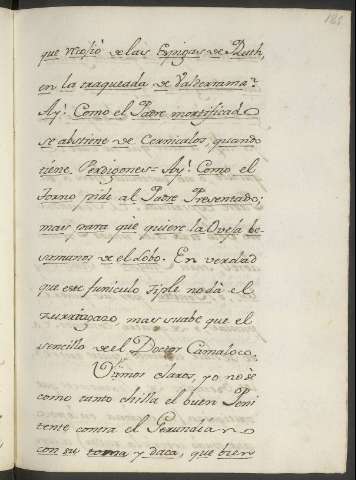 que vtofiò de las Espigas de Ruth,
en la traqueada de Valderrama?
Ay! Como el Padre mortificado
se abstiene de Cernicalos, quando
tiene Perdigones= Ay! Como el
Torno pide al Padre Presentado;
mas para què quiere la Oveja be-
samanos de el Lobo. En verdad
que este funiculo tiple no dà el
zurriagazo, mas suabe que el
sencillo de el Doctor Camaloco,
Vamos claros, yo no sè
como tanto chilla el buen Peni
tente contra el Gerundiano
con su toma y daca, que bien